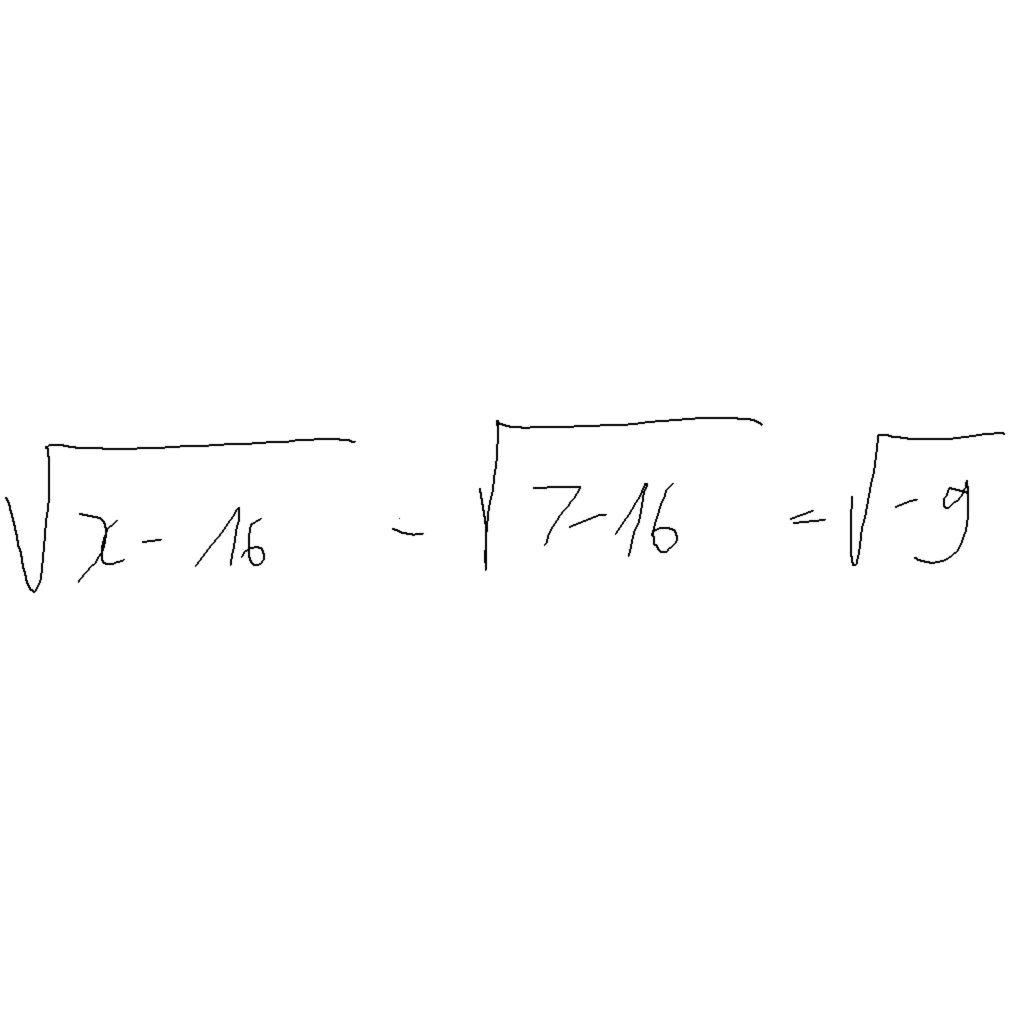 √(x - 16) - √(7 - 16) = √(-9)